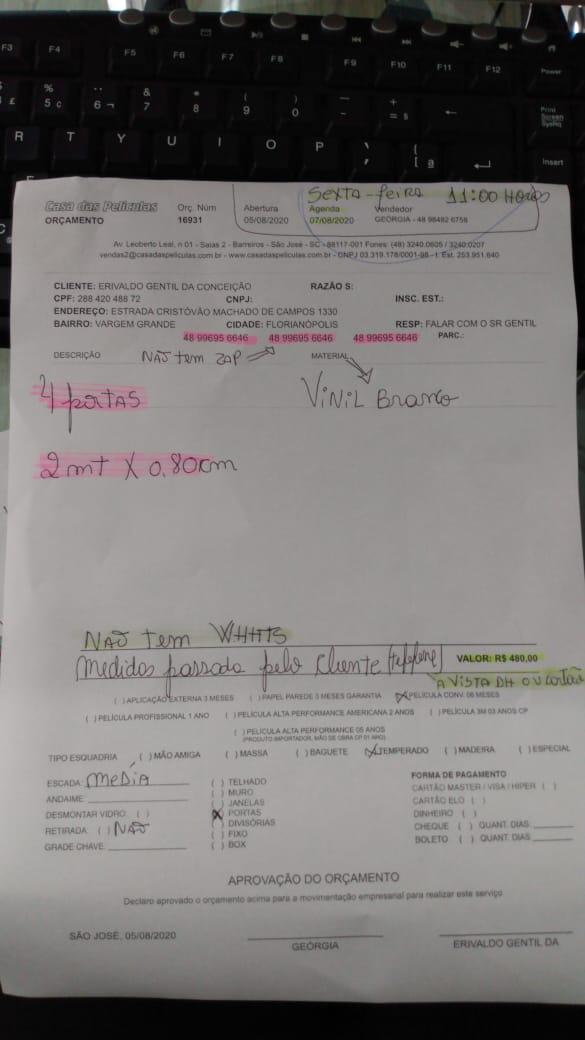 F3 F4 F5 F6 F7 F8 F9 F10 F11 F12 Power
£ % 5 ¢ 6 ¬ & 7 * 8 ( 9 ) 0 + = § Print Screen SysRq
R T Y U I O P [ ª Insert
SEXTA-feira 11:00 Horas
Casa das Películas Orç. Núm Abertura Agenda Vendedor
ORÇAMENTO 16931 05/08/2020 07/08/2020 GEORGIA - 48 98482 6758
Av. Leoberto Leal, n 01 - Salas 2 - Barreiros - São José - SC - 88117-001 Fones: (48) 3240.0605 / 3240.0207
vendas2@casadaspeliculas.com.br - www.casadaspeliculas.com.br - CNPJ 03.319.178/0001-98 - I. Est. 253.951.640
CLIENTE: ERIVALDO GENTIL DA CONCEIÇÃO RAZÃO S:
CPF: 288 420 488 72 CNPJ: INSC. EST.:
ENDEREÇO: ESTRADA CRISTÓVÃO MACHADO DE CAMPOS 1330
BAIRRO: VARGEM GRANDE CIDADE: FLORIANÓPOLIS RESP: FALAR COM O SR GENTIL
48 99695 6646 48 99695 6646 48 99695 6646 PARC.:
DESCRIÇÃO NÃO tem ZAP MATERIAL
4 portAS VINIL Branco
2 mt X 0.80cm
NÃO tem WHATS
Medidas passada pelo Cliente (telefone) VALOR: R$ 480,00
A VISTA DH OU Cartão
( ) APLICAÇÃO EXTERNA 3 MESES ( ) PAPEL PAREDE 3 MESES GARANTIA (X) PELÍCULA CONV. 06 MESES
( ) PELÍCULA PROFISSIONAL 1 ANO ( ) PELÍCULA ALTA PERFORMANCE AMERICANA 2 ANOS ( ) PELÍCULA 3M 03 ANOS CP
( ) PELÍCULA ALTA PERFORMANCE 05 ANOS
(PRODUTO IMPORTADOR, MÃO DE OBRA CP 01 ANO)
TIPO ESQUADRIA ( ) MÃO AMIGA ( ) MASSA ( ) BAGUETE (X) TEMPERADO ( ) MADEIRA ( ) ESPECIAL
ESCADA: MEDIA ( ) TELHADO FORMA DE PAGAMENTO
ANDAIME: ( ) MURO CARTÃO MASTER / VISA / HIPER ( )
DESMONTAR VIDRO: ( ) ( ) JANELAS CARTÃO ELO ( )
RETIRADA: ( ) NÃO (X) PORTAS DINHEIRO ( )
GRADE CHAVE: ( ) DIVISÓRIAS CHEQUE ( ) QUANT. DIAS
( ) FIXO BOLETO ( ) QUANT. DIAS
( ) BOX
APROVAÇÃO DO ORÇAMENTO
Declaro aprovado o orçamento acima para a movimentação empresarial para realizar este serviço
SÃO JOSÉ, 05/08/2020
GEÓRGIA ERIVALDO GENTIL DA